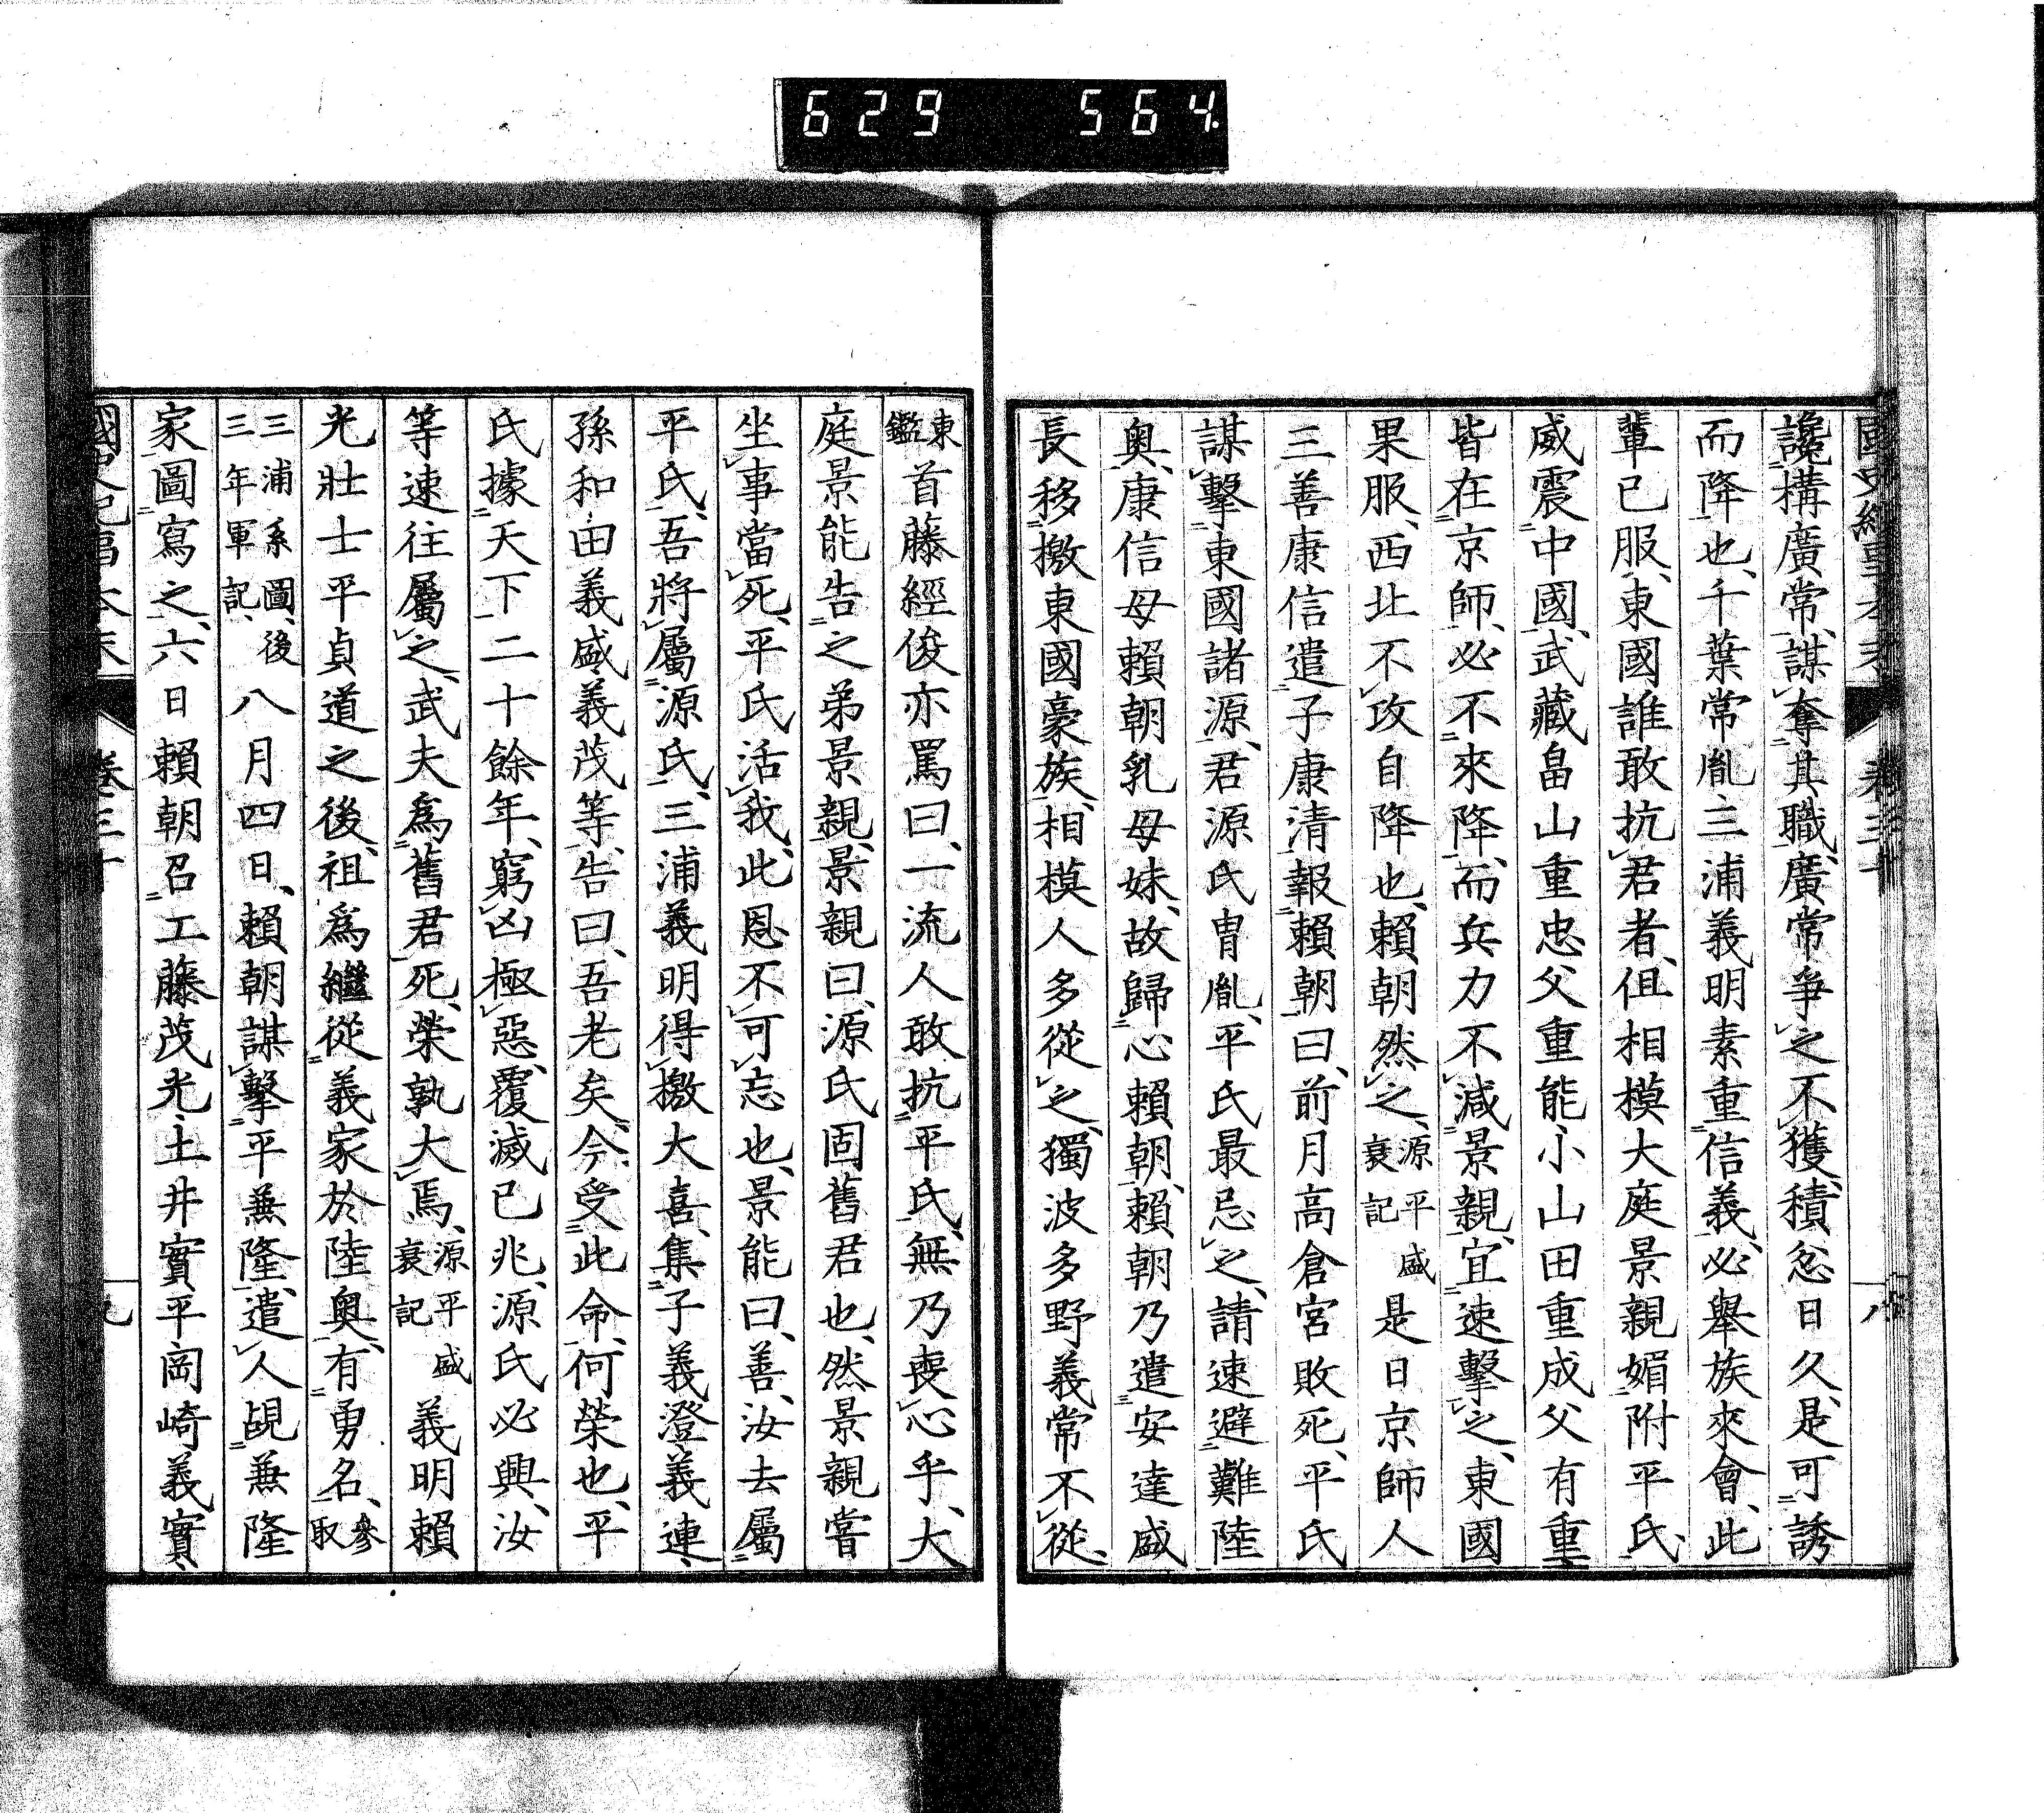 629 564
讒構廣常、謀奪其職、廣常爭之不獲、積忿日久、是可誘
而降也、千葉常胤三浦義明素重信義、必舉族來會、此
輩已服、東國誰敢抗君者、但相模大庭景親媚附平氏、
威震中國、武藏畠山重忠父重能、小山田重成父有重
皆在京師、必不來降、而兵力不減景親、宜速擊之、東國
果服、西北不攻自降也、賴朝然之、源平盛衰記是日京師人
三善康信遣子康清報賴朝曰、前月高倉宮敗死、平氏
謀擊東國諸源、君源氏胄胤、平氏最忌之、請速避難陸
奧、康信母賴朝乳母妹、故歸心賴朝、賴朝乃遣安達盛
長移檄東國豪族、相模人多從之、獨波多野義常不從、
東鑑首藤經俊亦罵曰、一流人敢抗平氏、無乃喪心乎、大
庭景能告之弟景親、景親曰、源氏固舊君也、然景親嘗
坐事當死、平氏活我、此恩不可忘也、景能曰、善、汝去屬
平氏、吾將屬源氏、三浦義明得檄大喜、集子義澄義連、
孫和田義盛義茂等、告曰、吾老矣、今受此命、何榮也、平
氏據天下二十餘年、窮凶極惡、覆滅已兆、源氏必興、汝
等速往屬之、武夫爲舊君死、榮孰大焉、源平盛衰記義明賴
光壯士平貞道之後、祖爲繼從義家於陸奧、有勇名、參取
三浦系圖、後三年軍記、八月四日、賴朝謀擊平兼隆、遣人覘兼隆
家圖寫之、六日賴朝召工藤茂光土井實平岡崎義實、
國史紀事本末 卷三十 九